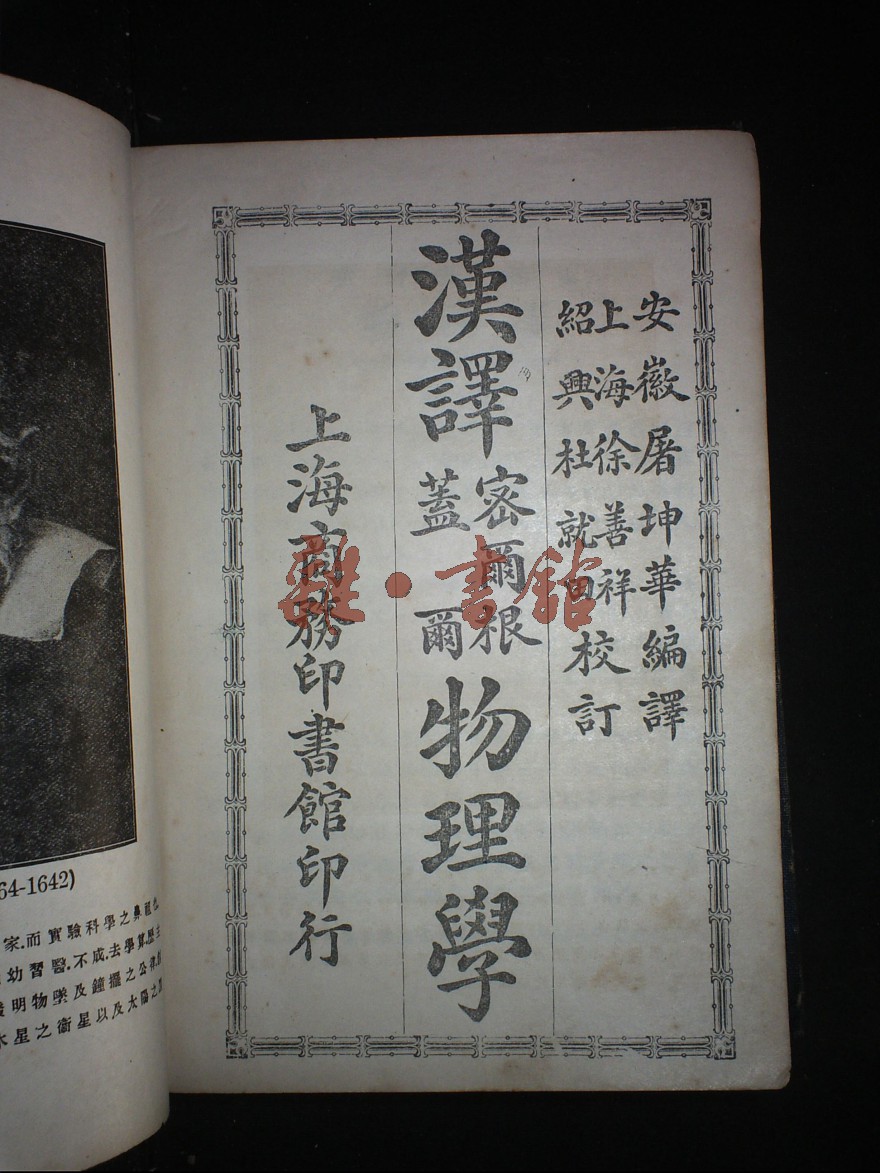 安徽屠坤華編譯
上海徐善祥
紹興杜就田校訂
漢譯密爾根蓋爾物理學
上海商務印書館印行
雜·書館
64-1642)
家.而實驗科學之鼻祖也
幼習醫.不成.去學算.歷主
明物墜及鐘擺之公律.
木星之衛星以及太陽之